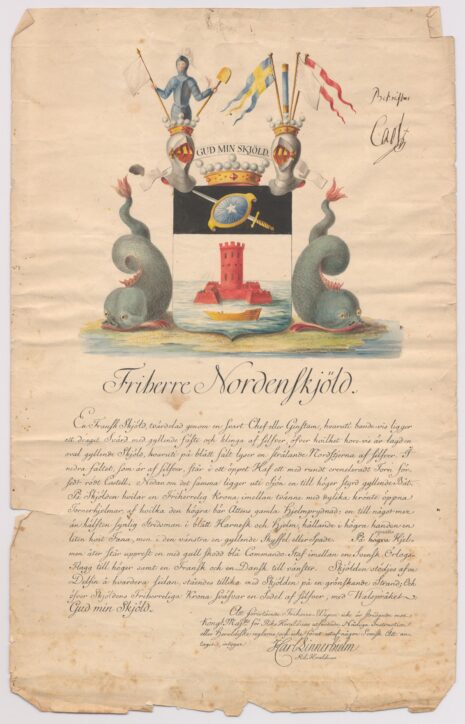 Carl
GUD MIN SKJÖLD.
Friherre Nordenskjöld.
En Fransk Skjöld, tvärdelad genom en svart Chef eller Ginstam, hvaruti bande-vis ligger
ett draget Svärd med gyllende fäste och klinga af silfver, öfver hvilket kors-vis är lagd en
oval gyllende Sköld, hvaruti på blått fält lyser en strålande Nordstjerna af silfver. I
nedra fältet, som är af silfver, står i ett öppet Haf ett med rundt creneleradt Torn för-
sedt rödt Castell. Nedan om det samma ligger uti Sjön en till höger styrd gyllende Båt.
På Skjölden hvilar en Friherrelig Krona, imellan tvänne med dylika krönte öppna
Tornerhjelmar, af hvilka den högra bär Ättens gamla Hjelmprydnad; en till något mer
än hälften synlig Stridsman i blått Harnesk och Hjelm, hållande i högra handen en
liten hvit Fana, men i den vänstra en gyllende Skyffel eller Spade. På högra Hjel-
men åter står upprest en med guld skodd blå Commando Staf imellan en Svensk Orlogs-
Flagg till höger samt en Fransk och en Dansk till vänster. Skjölden stödjes af en
Delfin å hvardera sidan, stående tillika med Skjölden på en gräns Strand. Och
öfver Skjöldens Friherreliga Krona sväfvar en Sedel af silfver, med Valspråket
Gud min Skjöld.
Att förestående Friherre Wapen icke är stridande mot
Kongl. Maj:ts för Riks Heraldicus utfärdade Nådiga Instruction
eller Heraldiske reglorne, och icke förut utaf någon Svensk Ätt an-
taget är, intygar
Karl Linnerhielm
Riks Heraldicus